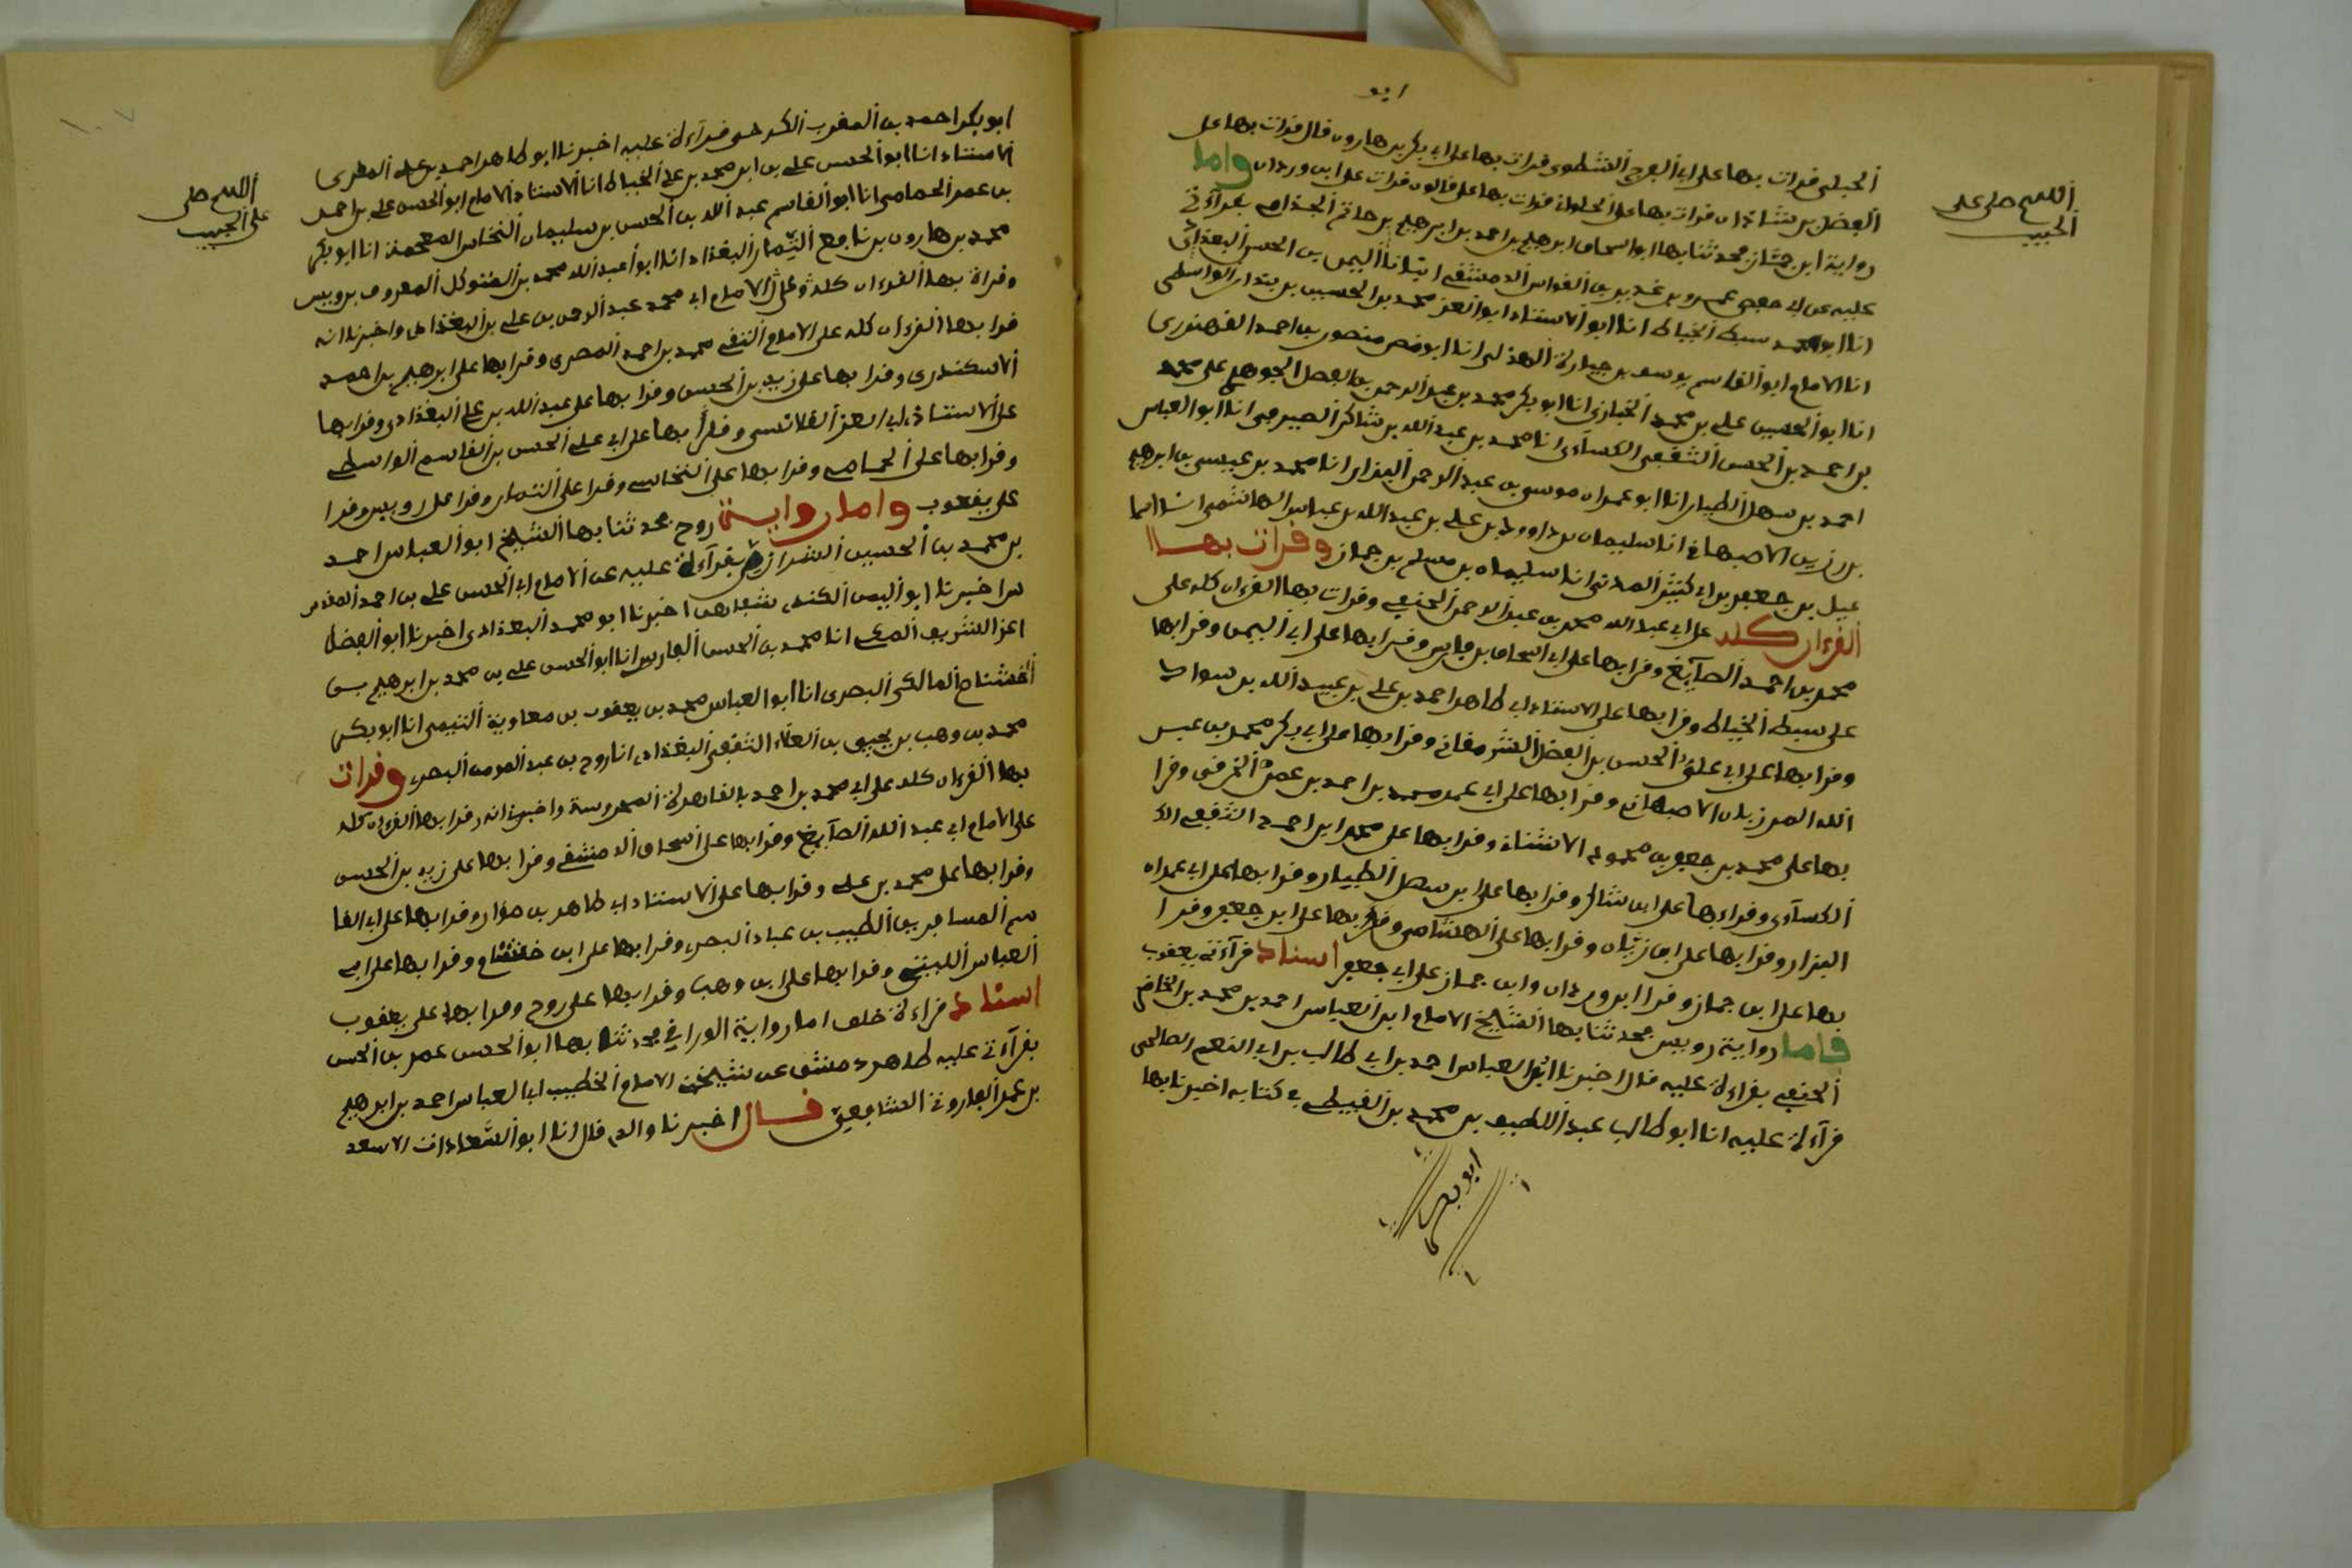 ابو
الحنبلي قرات بها على ابي الفرج الشطوي قرات بها على ابي بكر بن هارون قال قرات بها على
الفضل بن شاذان قرات بها على الحلواني قرات بها على قالون قرات على ابن وردان واما
رواية ابن جماز فحدثنا بها ابو اسحاق ابرهيم بن احمد بن ابرهيم بن حاتم الجذامي بقرآءتي
عليه عن ابي حفص عمرو بن غدير بن القواس الدمشقي انبانا اليمن بن الحسن البغدادي
انا ابو محمد سبط الخياط انا ابو الاستاذ ابو العز محمد بن الحسين بن بندار الواسطي
انا الامام ابو القاسم يوسف بن جبارة الهذلي انا ابو نصر منصور بن احمد القهندزي
انا ابو الحسين علي بن محمد الخبازي انا ابو بكر محمد بن عبد الرحمن بن الفضل الجوهري على محمد
بن احمد بن الحسن الثقفي الكسآءي انا محمد بن عبد الله بن شاكر الصيرفي انا ابو العباس
احمد بن سهل الطيار انا ابو عمران موسى بن عبد الرحمن البزار انا محمد بن عيسى بن ابرهيم
بن رزين الاصبهاني انا سليمان بن داوود بن علي بن عبد الله بن عباس الهاشمي انا اسما
عيل بن جعفر بن ابي كثير المدني انا سليمان بن مسلم بن جماز وقرات بها
القرءان كله على ابي عبد الله محمد بن عبد الرحمن الحنفي وقرات بها القرءان كله على
محمد بن احمد الصآيغ وقرا بها على ابي اسحاق بن فارس وقرا بها على ابي اليمن وقرا بها
على سبط الخياط وقرا بها على الاستاذ ابي طاهر احمد بن علي بن عبيد الله بن سوار
وقرا بها على ابي علي الحسن بن الفضل الشرمقاني وقرا بها على ابي بكر محمد بن عبد
الله المرزبان الاصبهاني وقرا بها على ابي عمر محمد بن احمد بن عمر الخرقي وقرا
بها على محمد بن جعفر بن محمود الاشناني وقرا بها على محمد بن احمد الثقفي الكـ
الكسآءي وقراء بها على ابن شاكر وقرا بها على ابن سهل الطيار وقرا بها على ابي عمران
البزار وقرا بها على ابن رزين وقرا بها على الهاشمي وقرا بها على ابن جعفر وقرا
بها على ابن جماز وقرا ابن وردان وابن جماز على ابي جعفر اسناد قرآءة يعقوب
فاما رواية رويس فحدثنا بها الشيخ الامام ابو العباس احمد بن محمد بن الخضر
الحنفي بقراءة عليه قال اخبرنا ابو العباس احمد بن ابي طالب بن ابي النعم الصالحي
قرآءة عليه انا ابو طالب عبد اللطيف بن محمد بن القبيطي في كتابه اخبرنا بها
ابو بكر
اللهم صل على
الحبيب
ابو بكر احمد بن المقرب الكرخي قرآءة عليه اخبرنا ابو طاهر احمد بن علي المقري
الاستاذ انا ابو الحسن علي بن ابي محمد بن علي الخياط انا الاستاذ الامام ابو الحسن علي بن احمد
بن عمر الحمامي انا ابو القاسم عبد الله بن الحسن بن سليمان النخاس المعجمة انا ابو بكر
محمد بن هارون بن نافع التمار البغدادي انا ابو عبد الله محمد بن المتوكل المعروف برويس
وقراة بها القرءان كله وعلى الامام ابي محمد عبد الرحمن بن علي بن البغدادي واخبرنا انه
قرا بها القرءان كله على الامام التقي محمد بن احمد المصري وقرا بها على ابرهيم بن احمد
الاسكندري وقرا بها على زيد بن الحسن وقرا بها على عبد الله بن علي البغدادي وقرا بها
على الاستاذ ابي العز القلانسي وقرا بها على ابي علي الحسن بن القاسم الواسطي
وقرا بها على الحمامي وقرا بها على النخاس وقرا على التمار وقرا على رويس وقرا
على يعقوب واما رواية روح فحدثنا بها الشيخ ابو العباس احمد
بن محمد بن الحسين الشيرازي بقرآءة عليه عن الامام ابي الحسن علي بن احمد المقدسي
اخبرنا ابو اليمن الكندي شفاها اخبرنا ابو محمد البغدادي اخبرنا ابو الفضل
اعز الشريف المكي انا محمد بن الحسن الفارسي انا ابو الحسن علي بن محمد بن ابرهيم بن
الخشنام المالكي البصري انا ابو العباس محمد بن يعقوب بن معاوية التيمي انا ابو بكر
محمد بن وهب بن يحيى بن العلاء الثقفي البغدادي انا روح بن عبد المومن البصري وقرات
بها القرءان كله على ابي محمد بن احمد بالقاهرة المحروسة واخبرني انه قرا بها القرءان كله
على الامام ابي عبد الله الصآيغ وقرا بها على اسحاق الدمشقي وقرا بها على زيد بن الحسن
وقرا بها على محمد بن علي وقرا بها على الاستاذ ابي طاهر بن سوار وقرا بها على ابي القا
سم المسافر بن الطيب بن عباد البصري وقرا بها على ابن خشنام وقرا بها على ابي
العباس التيمي وقرا بها على ابن وهب وقرا بها على روح وقرا بها على يعقوب
اسناد قراءة خلف اما رواية الوراق فحدثنا بها ابو الحسن عمر بن الحسن
بقرآءتي عليه ظاهر دمشق عن شيخه الامام الخطيب ابي العباس احمد بن ابرهيم
بن عمر الفاروثي الشافعي قال اخبرنا والدي قال انا ابو السعادات الاسعد
اللهم صل
على الحبيب